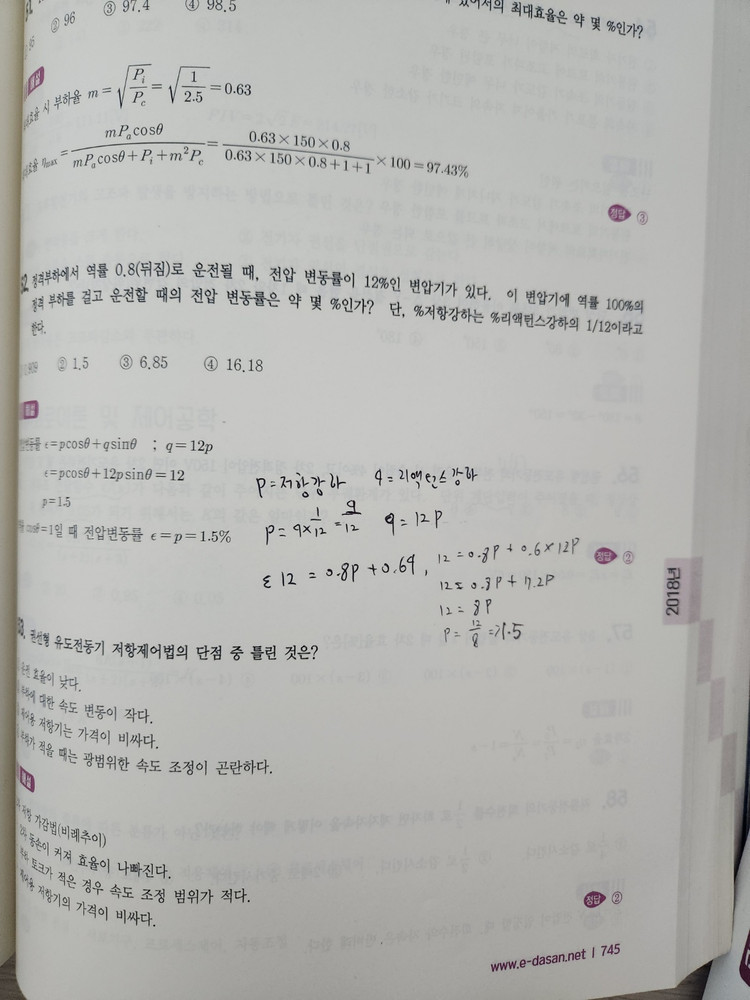 있어서의 최대효율은 약 몇 %인가?
② 96 ③ 97.4 ④ 98.5
시 부하율 m = √(P_i/P_c) = √(1/2.5) = 0.63
η_max = mP_a cosθ / (mP_a cosθ + P_i + m²P_c) = 0.63×150×0.8 / (0.63×150×0.8+1+1) ×100 = 97.43%
정답 ③
정격부하에서 역률 0.8(뒤짐)로 운전될 때, 전압 변동률이 12%인 변압기가 있다. 이 변압기에 역률 100%의
정격 부하를 걸고 운전할 때의 전압 변동률은 약 몇 %인가? 단, %저항강하는 %리액턴스강하의 1/12이라고
한다.
② 1.5 ③ 6.85 ④ 16.18
ϵ = pcosθ + qsinθ ; q = 12p
ϵ = pcosθ + 12psinθ = 12
p = 1.5
cosθ = 1일 때 전압변동률 ϵ = p = 1.5%
P = 저항강하 q = 리액턴스강하
P = q × 1/12 = q/12 q = 12P
ε 12 = 0.8P + 0.6q,
12 = 0.8P + 0.6×12P
12 = 0.8P + 7.2P
12 = 8P
P = 12/8 = 1.5
정답 ②
2018년
권선형 유도전동기 저항제어법의 단점 중 틀린 것은?
운전 효율이 낮다.
부하에 대한 속도 변동이 작다.
제어용 저항기는 가격이 비싸다.
부하가 적을 때는 광범위한 속도 조정이 곤란하다.
해설
저항 가감법(비례추이)
동손이 커져 효율이 나빠진다.
토크가 적은 경우 속도 조정 범위가 적다.
제어용 저항기의 가격이 비싸다.
정답 ②
www.e-dasan.net | 745